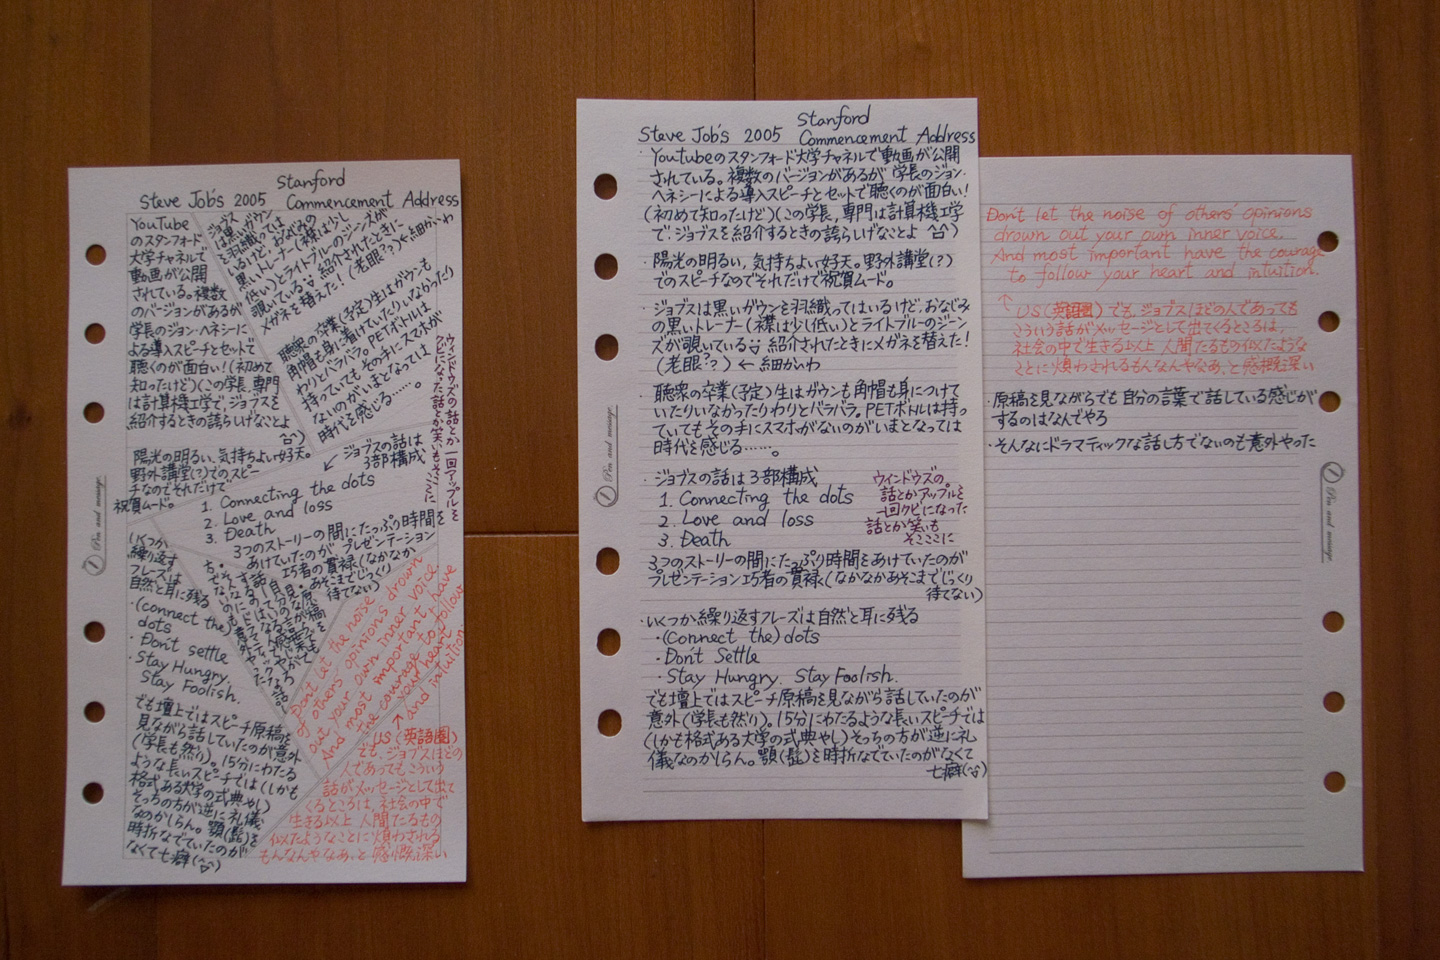 Stanford
Steve Job's 2005 Commencement Address
YouTube
のスタンフォード
大学チャネルで
動画が公開
されている。複数
のバージョンがあるが
学長のジョン・ヘネシーに
よる導入スピーチとセットで
聴くのが面白い!(初めて
知ったけど)(この学長、専門
は計算機工学で、ジョブスを
紹介するときの誇らしげなことよ
陽光の明るい、気持ちよい好天。
野外講堂(?)でのスピー
チなのでそれだけで
祝賀ムード。
ジョブス
は黒いガウン
を羽織っては
いるけど、おなじみの
黒いトレーナー(襟は少し
低い)とライトブルーのジーンズが
覗いている 紹介されたときに
メガネを替えた!(老眼??)←細かいわ
聴衆の卒業(予定)生はガウンも
角帽も身に着けていたりいなかったり
わりとバラバラ。PETボトルは
持っていてもその手にスマホが
ないのがいまとなっては
時代を感じる……。
ウィンドウズの話とか一回アップルを
クビになった話とか笑いもそこここに
ジョブスの話は
3部構成
1. Connecting the dots
2. Love and loss
3. Death
3つのストーリーの間にたっぷり時間を
あけていたのが プレゼンテーション
巧者の貫禄(なかなか
あそこまでじっくり
待てない)
いくつか
繰り返す
フレーズは
自然と耳に残る
・(connect the)
dots
・Don't settle
・Stay Hungry.
Stay Foolish.
でも壇上ではスピーチ原稿を
見ながら話していたのが意外
(学長も然り)。15分にわたる
ような長いスピーチでは(しかも
格式ある大学の式典やし)
そっちの方が逆に礼儀
なのかしらん。顎(髭)を
時折なでていたのが
なくて七癖
・原稿を
見ながらでも
自分の言葉で
話している感じが
するのはなんでやろ
・そんなにドラマティックな
話し方でないのも意外やった
Don't let the noise
of others' opinions drown
out your own inner voice.
And most important, have
the courage to follow
your heart
and intuition.
US(英語圏)
でも、ジョブスほどの
人であってもこういう
話がメッセージとして出て
くるところは、社会の中で
生きる以上 人間たるもの
似たようなことに煩わされる
もんなんやなあ、と感慨深い
Pen and message.
Stanford
Steve Job's 2005 Commencement Address
・Youtubeのスタンフォード大学チャネルで動画が公開
されている。複数のバージョンがあるが 学長のジョン・
ヘネシーによる導入スピーチとセットで聴くのが面白い!
(初めて知ったけど)(この学長、専門は計算機工学
で、ジョブスを紹介するときの誇らしげなことよ
・陽光の明るい、気持ちよい好天。野外講堂(?)
でのスピーチなのでそれだけで祝賀ムード。
・ジョブスは黒いガウンを羽織ってはいるけど、おなじみ
の黒いトレーナー(襟は少し低い)とライトブルーのジーン
ズが覗いている 紹介されたときにメガネを替えた!
(老眼??) ← 細かいわ
・聴衆の卒業(予定)生はガウンも角帽も身につけて
いたりいなかったりわりとバラバラ。PETボトルは持っ
ていてもその手にスマホがないのがいまとなっては
時代を感じる……。
・ジョブスの話は3部構成
1. Connecting the dots
2. Love and loss
3. Death
ウィンドウズの
話とかアップルを
一回クビになった
話とか笑いも
そこここに
3つのストーリーの間にたっぷり時間をあけていたのが
プレゼンテーション巧者の貫禄(なかなかあそこまでじっくり
待てない)
・いくつか繰り返すフレーズは自然と耳に残る
・(Connect the) dots
・Don't Settle
・Stay Hungry. Stay Foolish.
でも壇上ではスピーチ原稿を見ながら話していたのが
意外(学長も然り)。15分にわたるような長いスピーチでは
(しかも格式ある大学の式典やし)そっちの方が逆に礼
儀なのかしらん。顎(髭)を時折なでていたのがなくて
七癖
Pen and message.
Don't let the noise of others' opinions
drown out your own inner voice.
And most important, have the courage
to follow your heart and intuition.
↑ US(英語圏)でも、ジョブスほどの人であっても
こういう話がメッセージとして出てくるところは、
社会の中で生きる以上 人間たるもの似たような
ことに煩わされるもんなんやなあ、と感慨深い
・原稿を見ながらでも自分の言葉で話している感じが
するのはなんでやろ
・そんなにドラマティックな話し方でないのも意外やった
Pen and message.